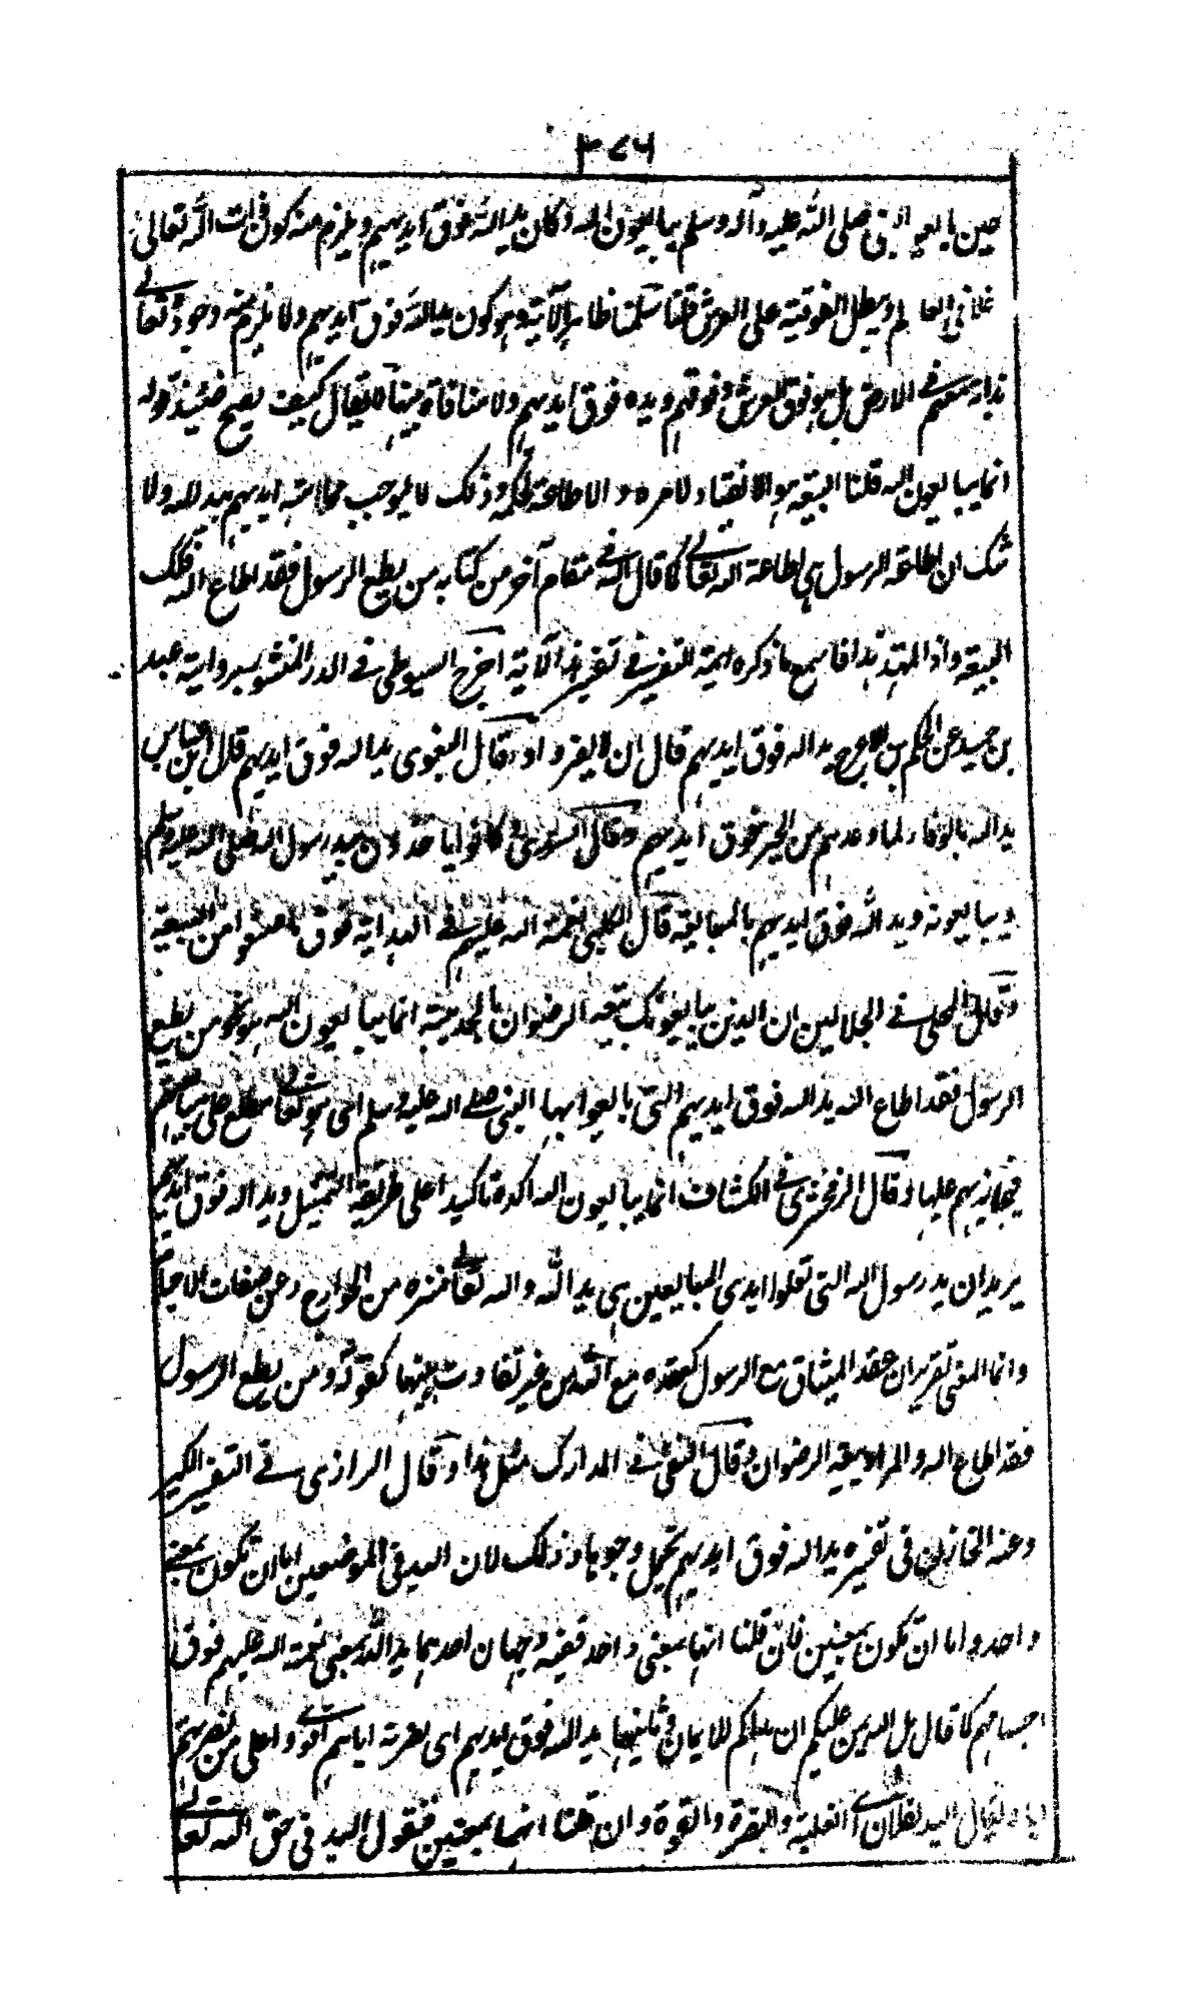 ٣٧٦
حين بايعوا النبي صلى الله عليه وآله وسلم يبايعون الله وكان يد الله فوق ايديهم ويلزم منه كون ذات الله تعالى
في العالم ويبطل الفوقية على العرش قلنا سلمنا ظاهر الآية وهو كون يد الله فوق ايديهم ولا يلزم منه وجوده تعالى
بذاته معهم في الارض بل هو فوق العرش وفوقهم ويده فوق ايديهم ولا منافاة بينها لا يقال كيف يصح حينئذ قوله
انما يبايعون الله قلنا البيعة هو الانقياد لامره والاطاعة لحكمه وذلك لا يوجب مماسة ايديهم بيد الله ولا
شك ان اطاعة الرسول هي اطاعة الله تعالى كما قال الله في مقام آخر من كتابه من يطع الرسول فقد اطاع الله فكذلك
البيعة واذا تمهد هذا فاسمع ما ذكره ائمة التفسير في تفسير الآية اخرج السيوطي في الدر المنثور برواية عبد
بن حميد عن الحكم بن الاعرج يد الله فوق ايديهم قال ان لا يفروا وقال البغوي يد الله فوق ايديهم قال ابن عباس
يد الله بالوفاء لما وعدهم من الخير فوق ايديهم وقال السدي كانوا ياخذون بيد رسول الله صلى الله عليه وسلم
ويبايعونه ويد الله فوق ايديهم بالمبايعة قال الكلبي نعمة الله عليهم في الهداية فوق ما صنعوا من البيعة
وقال المحلي في الجلالين ان الذين يبايعونك بيعة الرضوان بالحديبية انما يبايعون الله هو نحو من يطع
الرسول فقد اطاع الله يد الله فوق ايديهم التي بايعوا بها النبي صلى الله عليه وسلم اى هو تعالى مطلع على مبايعتهم
فيجازيهم عليها وقال الزمخشري في الكشاف انما يبايعون الله اكده تاكيدا على طريقة التمثيل ويد الله فوق ايديهم
يريد ان يد رسول الله التي تعلوا ايدى المبايعين هي يد الله والله تعالى منزه من الجوارح وعن صفات الاجسام
وانما المعنى تقرير ان عقد الميثاق مع الرسول كعقده مع الله من غير تفاوت بينها كقوله ومن يطع الرسول
فقد اطاع الله والمراد بيعة الرضوان وقال النسفي في المدارك مثل هذا وقال الرازى في التفسير الكبير
وعنه الخازن في تفسيره يد الله فوق ايديهم يحتمل وجوها وذلك لان اليد في الموضعين اما ان تكون بمعنى
واحد واما ان تكون بمعنيين فان قلنا انها بمعنى واحد ففيه وجهان احدهما يد الله بمعنى نعمة الله عليهم فوق
احسانهم كما قال بل الله يمن عليكم ان هداكم للايمان وثانيها يد الله فوق ايديهم اى نصرته اياهم اقوى واعلى من نصرتهم
اياه يقال اليد لفلان اى الغلبة والنصرة والقوة وان قلنا انها بمعنيين فنقول اليد في حق الله تعالى